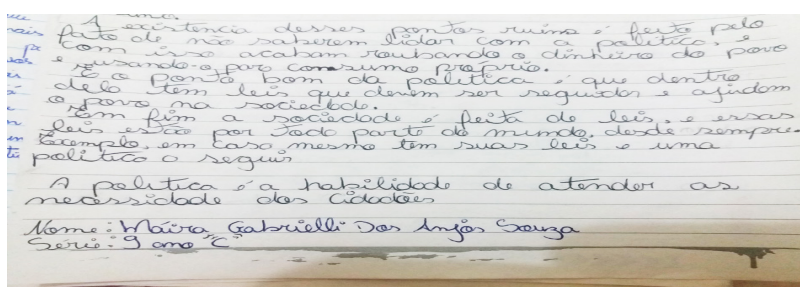 A existencia desses pontos ruins é feito pelo
fato de não saberem lidar com a politica, e
com isso acabam roubando o dinheiro do povo
e usando-o para consumo próprio.
E o ponto bom da politica é que dentro
dela tem leis que devem ser seguidas e ajudam
o povo na sociedade.
Em fim a sociedade é feita de leis, e essas
leis estão por toda parte do mundo, desde sempre.
Exemplo, em casa mesmo tem suas leis e uma
politica a seguir
A politica é a habilidade de atender as
necessidade dos cidadões
Nome: Maíra Gabrielli Dos Anjos Souza
Série: 9 ano "C"